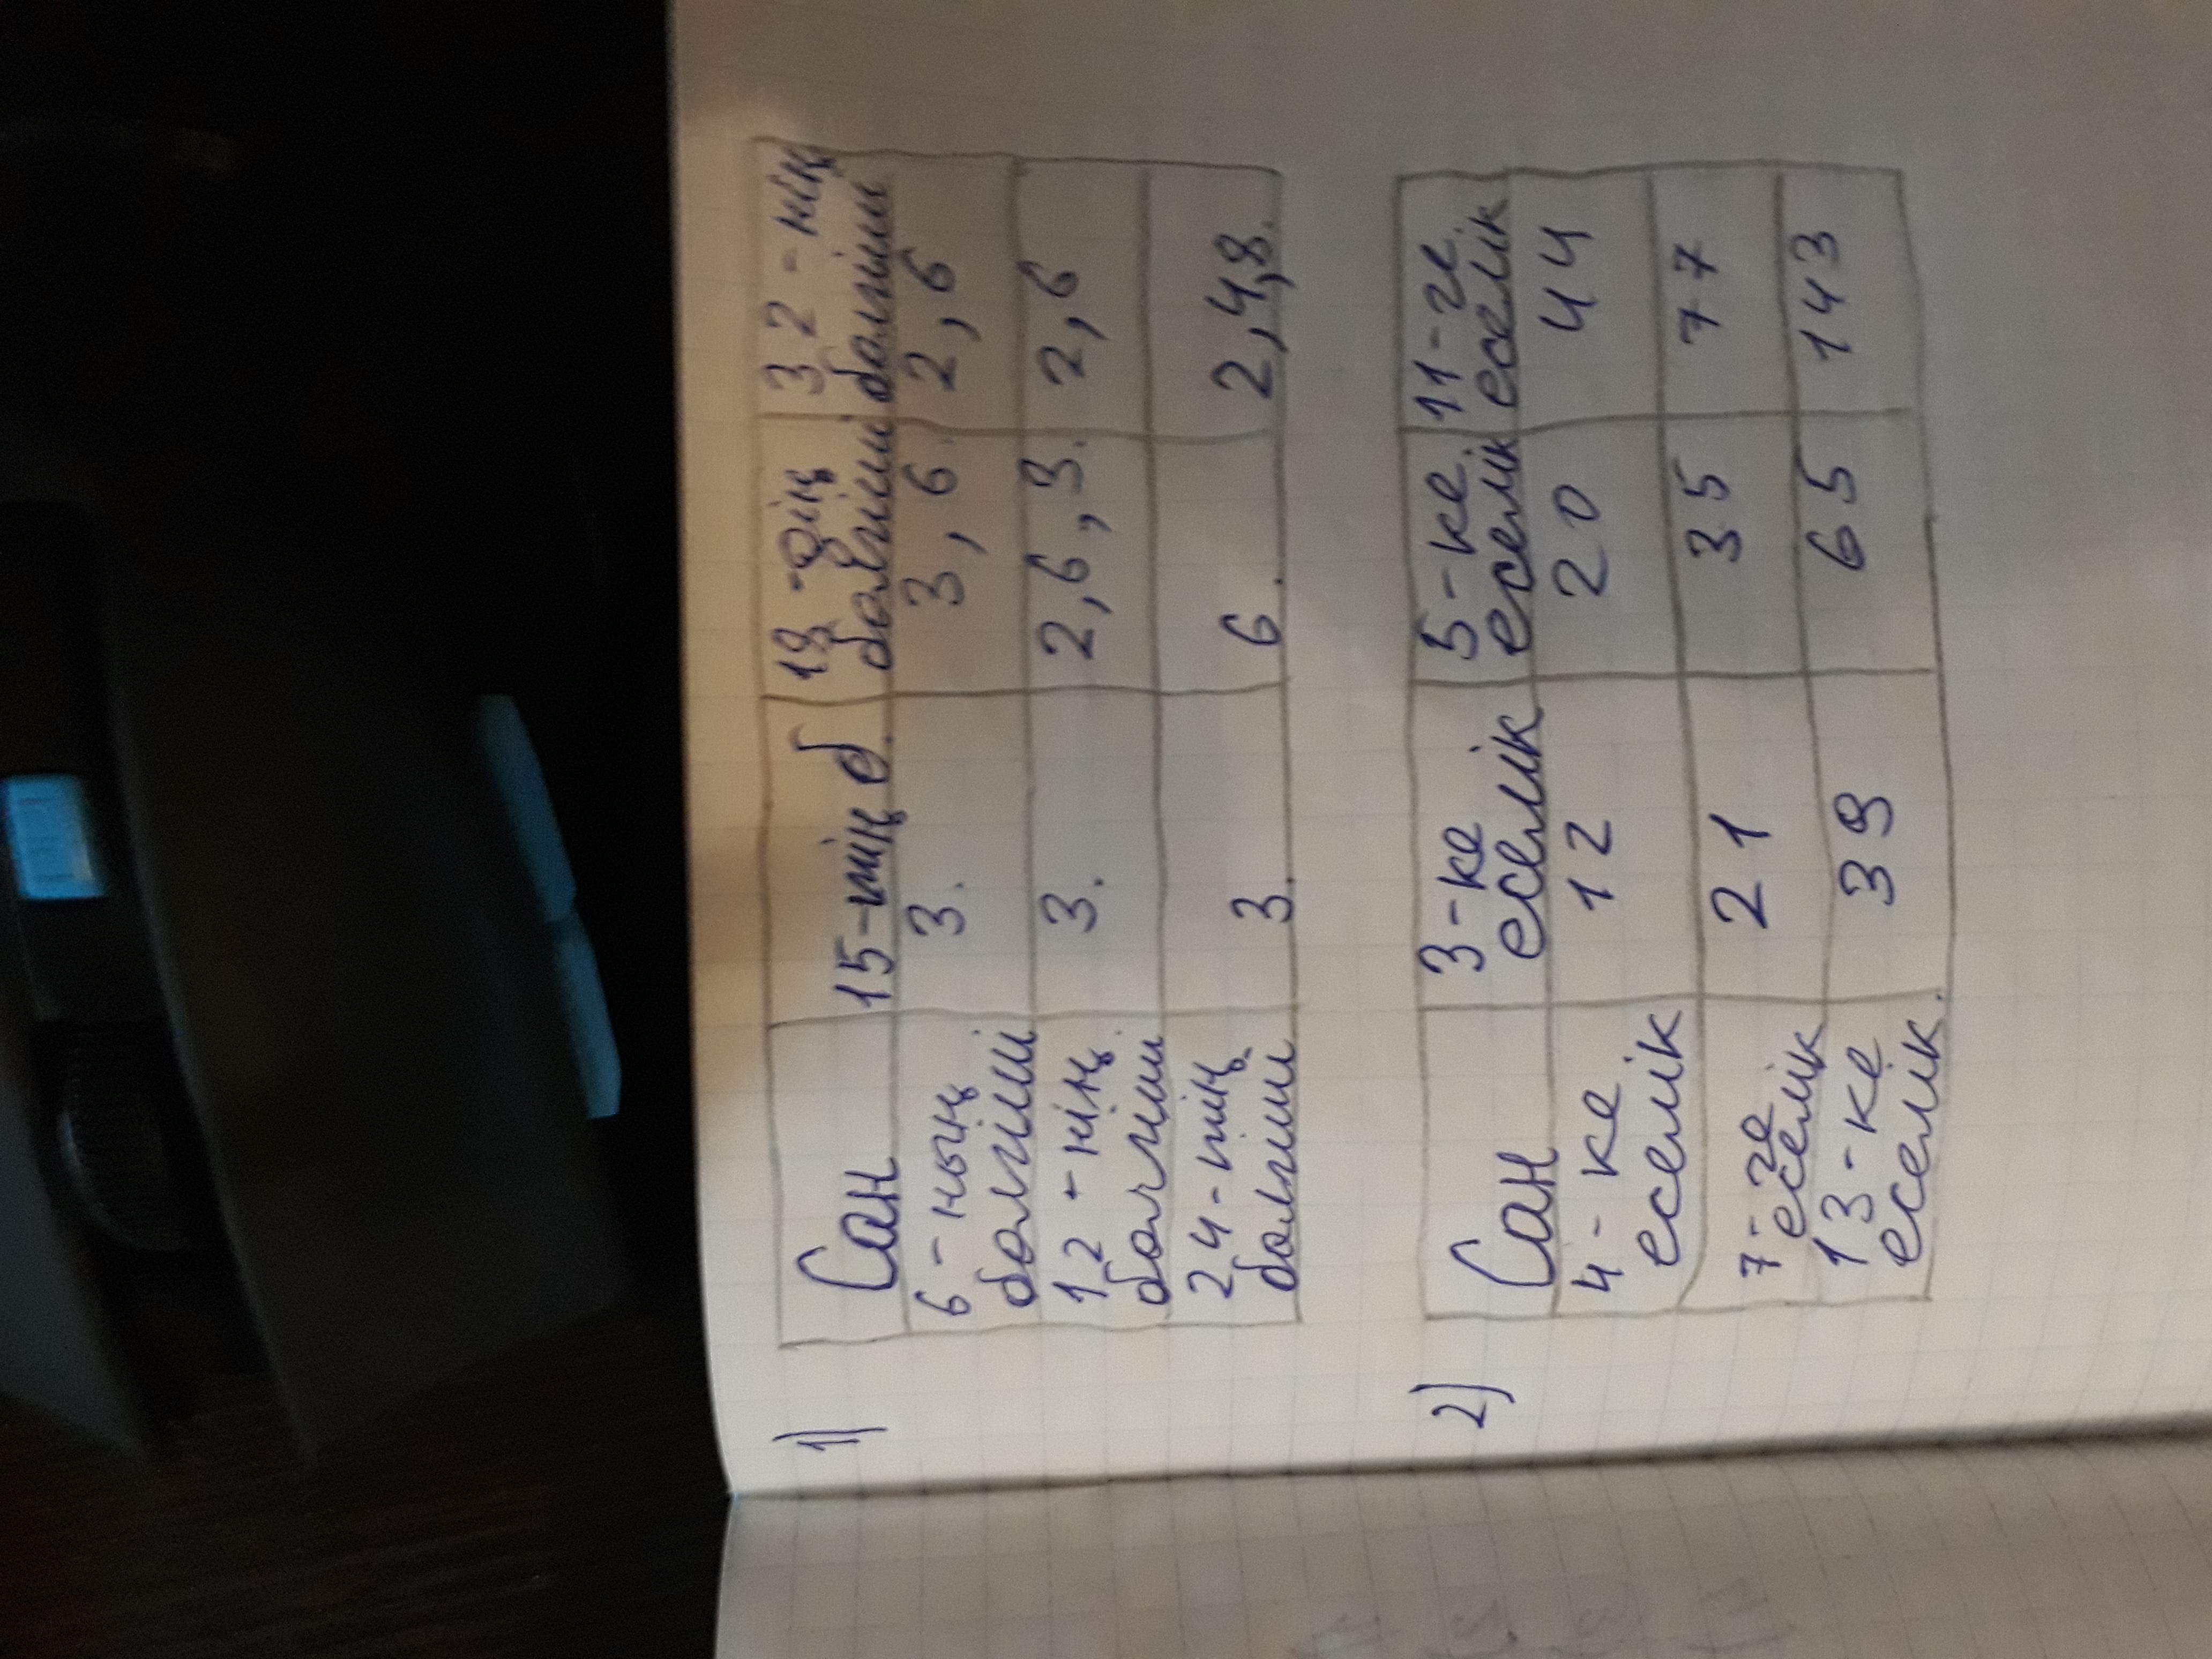 1)
Сан 15-тің б. 18-дің бөлгіші 32-нің бөлгіші
6-ның бөлгіші 3. 3, 6. 2, 6
12-нің бөлгіші 3. 2, 6, 3. 2, 6
24-тің бөлгіші 3. 6. 2, 4, 8.
2)
Сан 3-ке еселік 5-ке еселік 11-ге еселік
4-ке еселік 12 20 44
7-ге еселік 21 35 77
13-ке еселік. 39 65 143